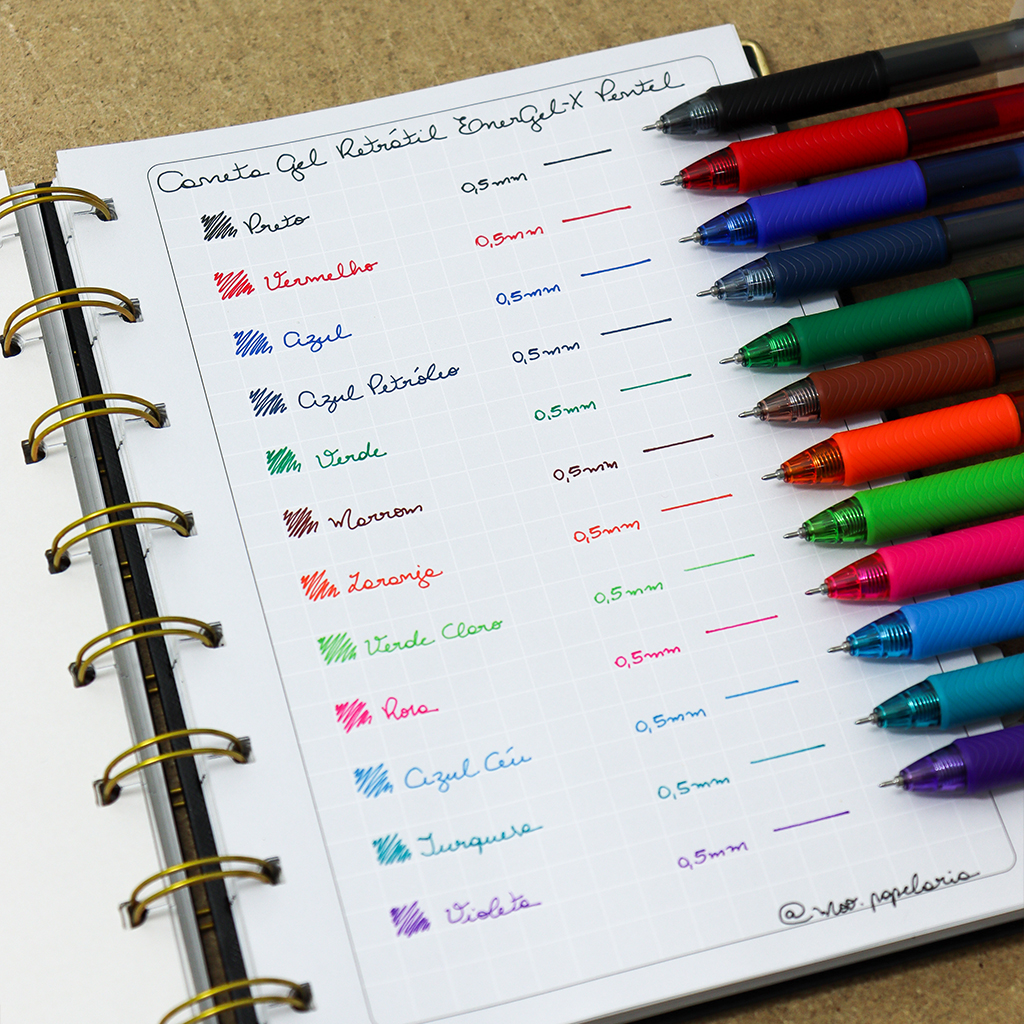 Caneta Gel Retrátil EnerGel-X Pentel
Preto 0,5mm
Vermelho 0,5mm
Azul 0,5mm
Azul Petróleo 0,5mm
Verde 0,5mm
Marrom 0,5mm
Laranja 0,5mm
Verde Claro 0,5mm
Rosa 0,5mm
Azul Céu 0,5mm
Turquesa 0,5mm
Violeta 0,5mm
@moo.papelaria